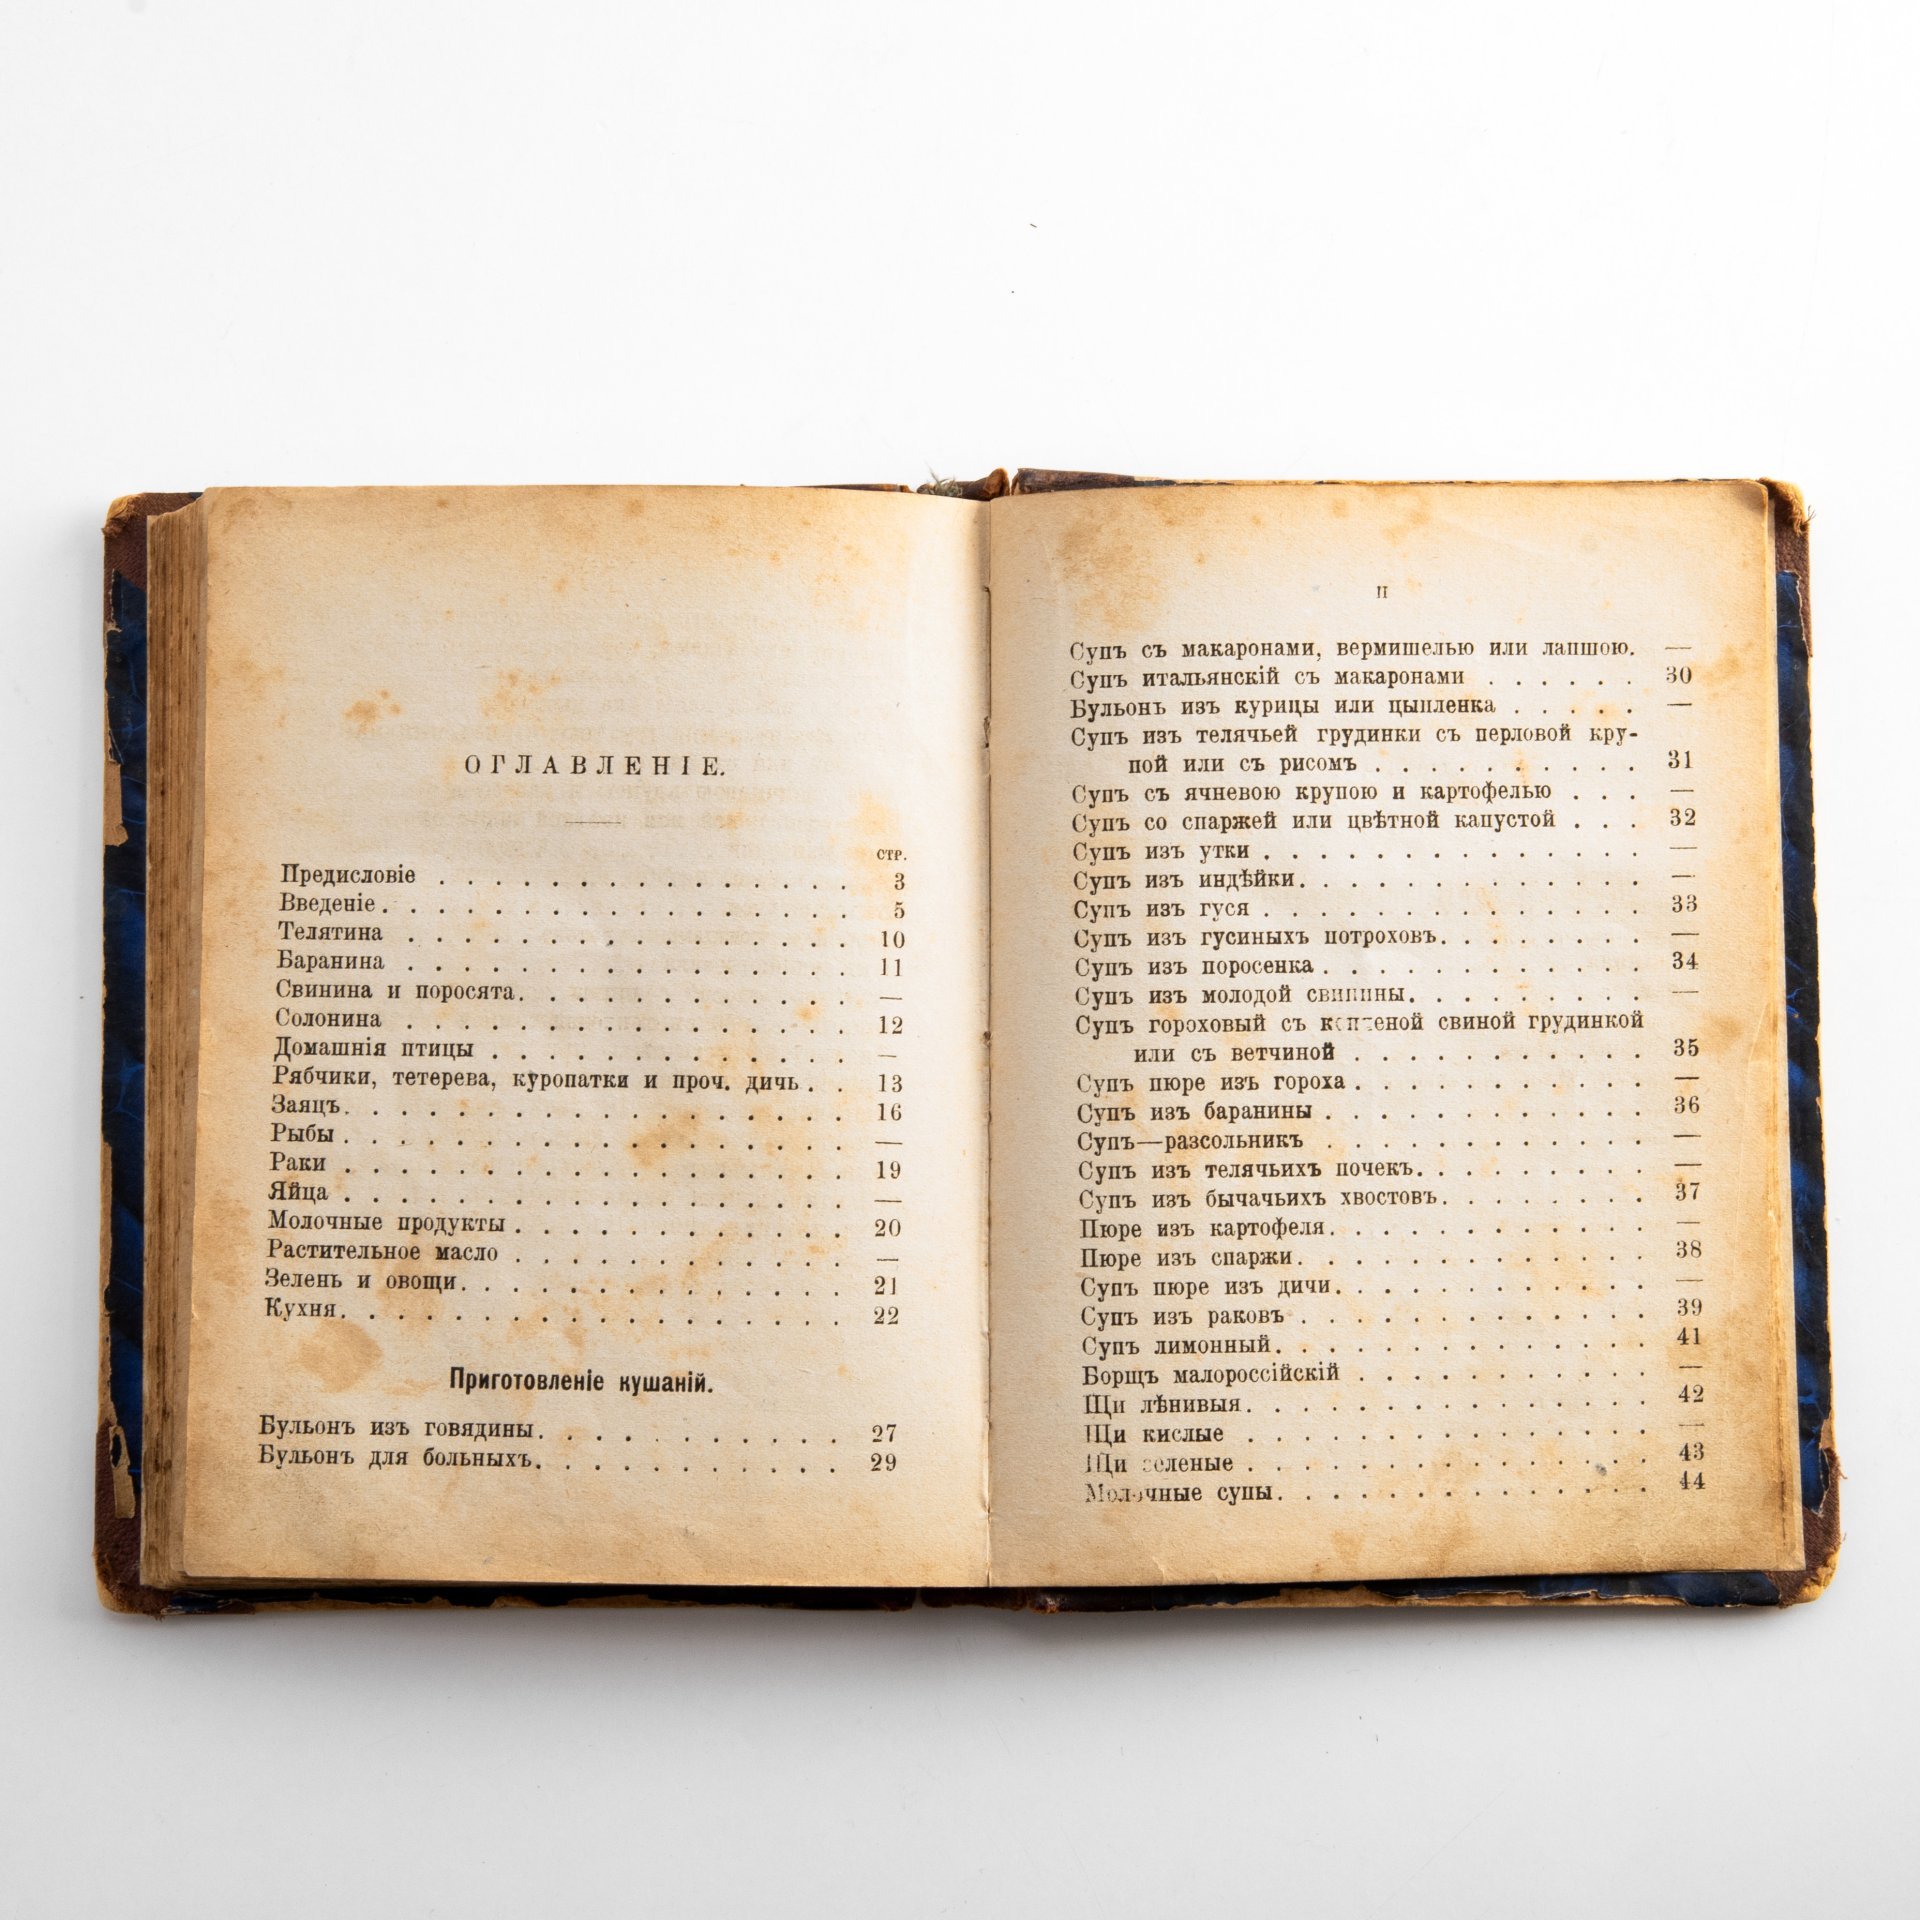 ОГЛАВЛЕНІЕ.
СТР.
Предисловіе . . . . . . . . . . . . . . . 3
Введеніе . . . . . . . . . . . . . . . . . 5
Телятина . . . . . . . . . . . . . . . . 10
Баранина . . . . . . . . . . . . . . . . 11
Свинина и поросята . . . . . . . . . . . . —
Солонина . . . . . . . . . . . . . . . . 12
Домашнія птицы . . . . . . . . . . . . . —
Рябчики, тетерева, куропатки и проч. дичь . . 13
Заяцъ . . . . . . . . . . . . . . . . . . 16
Рыбы . . . . . . . . . . . . . . . . . . —
Раки . . . . . . . . . . . . . . . . . . 19
Яйца . . . . . . . . . . . . . . . . . . —
Молочные продукты . . . . . . . . . . . . 20
Растительное масло . . . . . . . . . . . . —
Зелень и овощи . . . . . . . . . . . . . . 21
Кухня . . . . . . . . . . . . . . . . . . 22
Приготовленіе кушаній.
Бульонъ изъ говядины . . . . . . . . . . . 27
Бульонъ для больныхъ . . . . . . . . . . . 29
II
Супъ съ макаронами, вермишелью или лапшою. —
Супъ итальянскій съ макаронами . . . . . . 30
Бульонъ изъ курицы или цыпленка . . . . . —
Супъ изъ телячьей грудинки съ перловой кру-
пой или съ рисомъ . . . . . . . . . . 31
Супъ съ ячневою крупою и картофелью . . . —
Супъ со спаржей или цвѣтной капустой . . . 32
Супъ изъ утки . . . . . . . . . . . . . . —
Супъ изъ индѣйки . . . . . . . . . . . . . —
Супъ изъ гуся . . . . . . . . . . . . . . 33
Супъ изъ гусиныхъ потроховъ . . . . . . . . —
Супъ изъ поросенка . . . . . . . . . . . . 34
Супъ изъ молодой свинины . . . . . . . . . —
Супъ гороховый съ копченой свиной грудинкой
или съ ветчиной . . . . . . . . . . . 35
Супъ пюре изъ гороха . . . . . . . . . . . —
Супъ изъ баранины . . . . . . . . . . . . 36
Супъ—разсольникъ . . . . . . . . . . . . —
Супъ изъ телячьихъ почекъ . . . . . . . . . —
Супъ изъ бычачьихъ хвостовъ . . . . . . . . 37
Пюре изъ картофеля . . . . . . . . . . . . —
Пюре изъ спаржи . . . . . . . . . . . . . 38
Супъ пюре изъ дичи . . . . . . . . . . . . —
Супъ изъ раковъ . . . . . . . . . . . . . 39
Супъ лимонный . . . . . . . . . . . . . . 41
Борщъ малороссійскій . . . . . . . . . . . —
Щи лѣнивыя . . . . . . . . . . . . . . . 42
Щи кислые . . . . . . . . . . . . . . . —
Щи зеленые . . . . . . . . . . . . . . . 43
Молочные супы . . . . . . . . . . . . . . 44